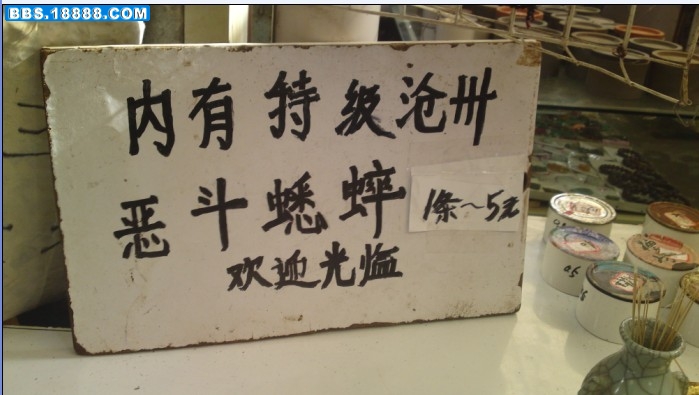 BBS.18888.COM
内有特级沧卅
恶斗蟋蟀
1条~5元
欢迎光临